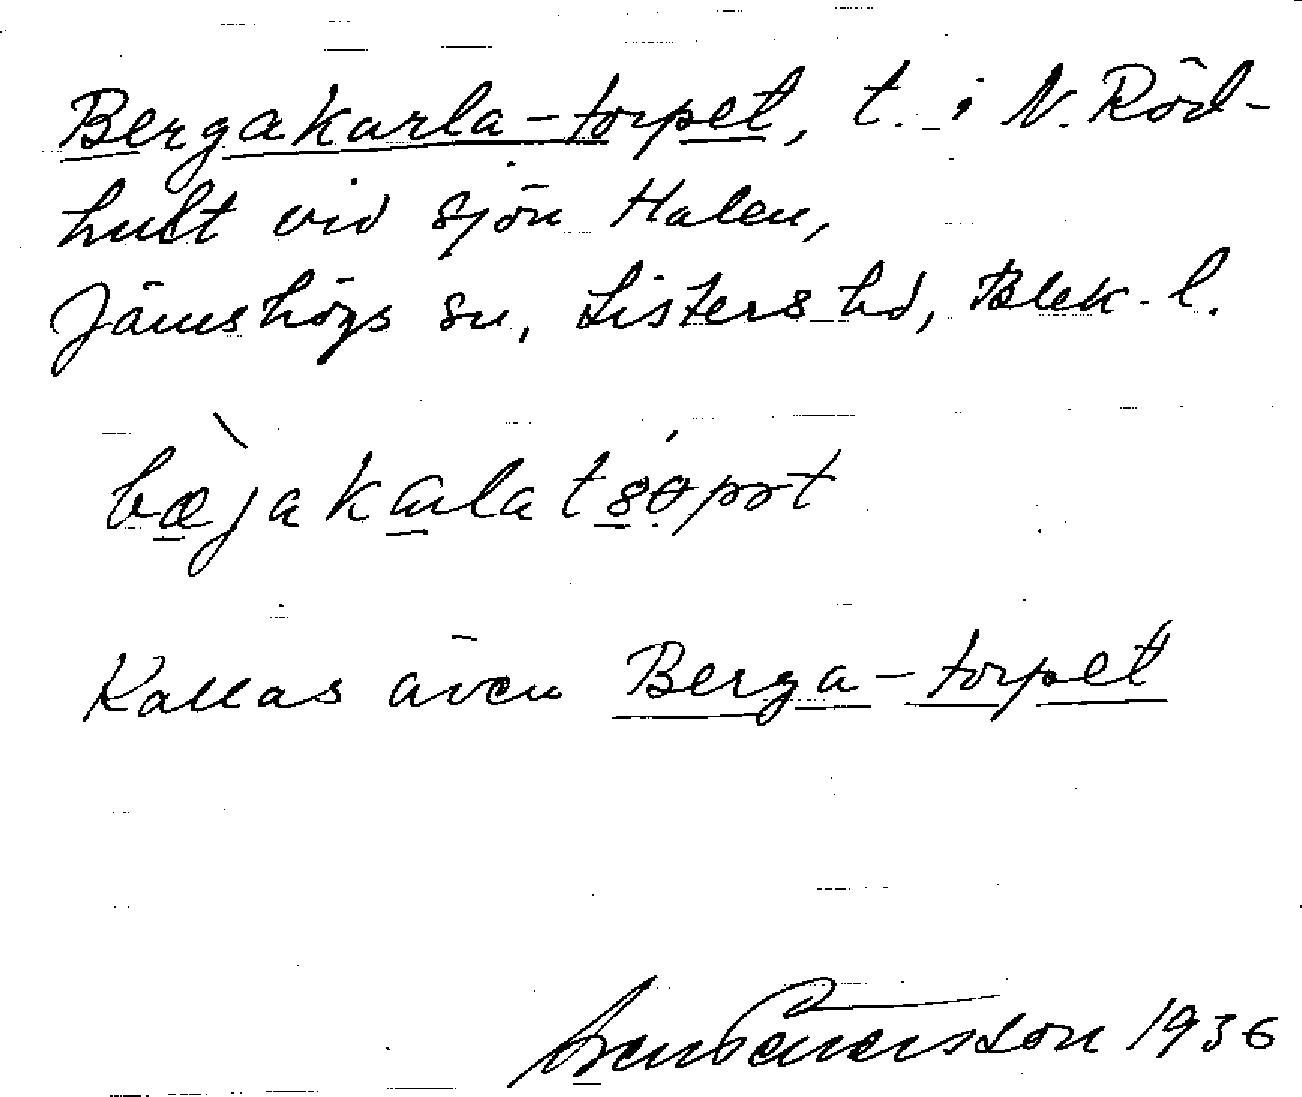 Bergakarla-torpet, t. i N. Röd-
hult vid sjön Halen,
Jämshögs sn, Listers hd, Blek. l.
Kallas även Berga-torpet
1936